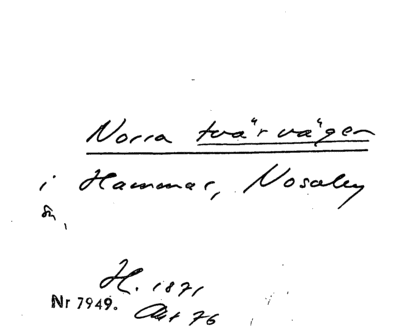 Norra tvärvägen
i Hammar, Nosaby
sn,
H. 1871
Nr 7949. Akt 76